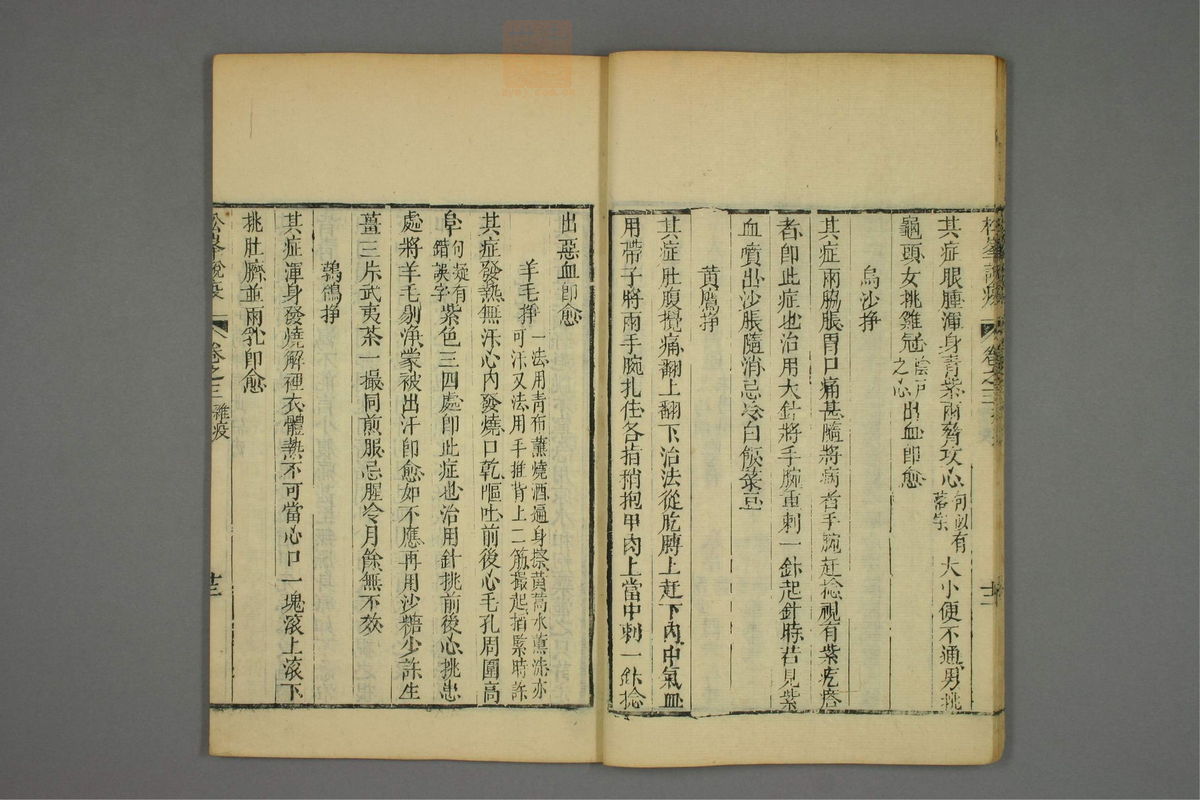 其症眼腫渾身青紫兩脅攻心句似有落字大小便不通男挑
龜頭女挑雞冠陰戶之心出血即愈
烏沙掙
其症兩脇脹胃口痛甚隨將病者手腕赶捻視有紫疙瘩
者即此症也治用大針將手腕重刺一針起針時若見紫
血噴出沙脹隨消忌冷白飯菉豆
黃鷹掙
其症肚腹攪痛翻上翻下治法從肐膊上赶下內中氣血
用帶子將兩手腕扎住各指梢抱甲肉上當中刺一針捻
出惡血即愈
羊毛掙一法用青布蘸燒酒遍身擦黃蒿水薰洗亦可汗又法用手推背上二筋撮起掐緊時許
其症發熱無汗心內發燒口乾嘔吐前後心毛孔周圍高
阜句疑有錯誤字紫色三四處即此症也治用針挑前後心挑患
處將羊毛剔淨蒙被出汗即愈如不應再用沙糖少許生
薑三片武夷茶一撮同煎服忌腥冷月餘無不效
鵓鴿掙
其症渾身發燒解裡衣體熱不可當心口一塊滾上滾下
挑肚臍並兩乳即愈
松峯說疫
卷之三
雜疫